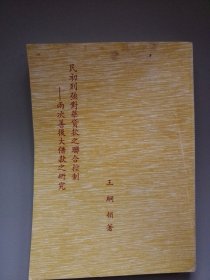 民初列強對華貸款之聯合控制
——兩次善後大借款之研究
王綱領著